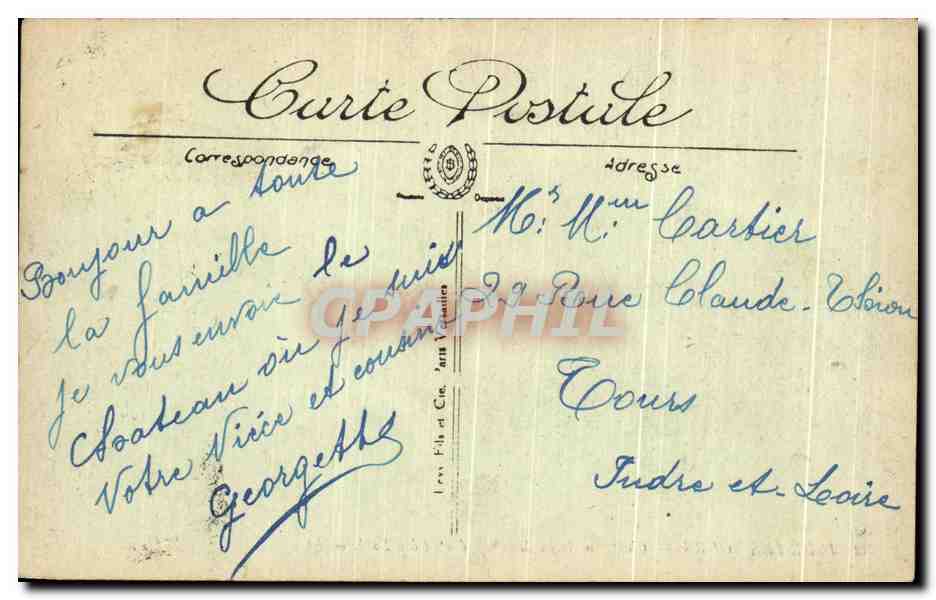 Carte Postale
Correspondance
Adresse
Bonjour a toute
la famille
je vous envoie le
chateau où je suis
Votre Nièce et cousine
Georgette
Lévy Fils et Cie, Paris
Mr. Mme Cartier
29 Rue Claude-
Tours
Indre et-Loire
CPAPHIL